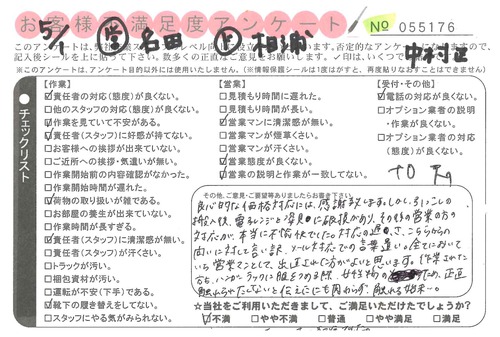 お客様満足度アンケート
No 055176
5/1 営 名田 下 相浦
中村区
このアンケートは、
※このアンケートは、アンケート目的以外には使用いたしません。(※情報保護シールは1度はがすと、再度貼りなおすことはできません)
チェックリスト
【作業】
☑責任者の対応(態度)が良くない。
□他のスタッフの対応(態度)が良くない。
☑作業を見ていて不安がある。
☑責任者(スタッフ)に好感が持てない。
□お客様への挨拶が出来ていない。
□ご近所への挨拶・気遣いが無い。
□作業開始前の内容確認がなかった。
□作業開始時間が遅れた。
☑荷物の取り扱いが雑である。
□お部屋の養生が出来ていない。
□作業時間が長すぎる。
☑責任者(スタッフ)に清潔感が無い。
□責任者(スタッフ)が汗くさい。
□トラックが汚い。
□梱包資材が汚い。
□運転が不安(下手)である。
☑靴下の履き替えをしてない。
□スタッフにやる気がみられない。
【営業】
□見積もり時間に遅れた。
□見積もり時間が長い。
☑営業マンに清潔感が無い。
□営業マンが煙草くさい。
□営業マンが汗くさい。
☑営業態度が良くない。
☑営業の説明と作業が一致してない。
【受付・その他】
☑電話の対応が良くない。
□オプション業者の説明
・作業が良くない。
□オプション業者の対応
(態度)が良くない。
その他、ご意見・ご要望等ありましたらお書き下さい。
良心的な価格対応には、感謝致しますが、引っこしの
搬入後、電子レンジと
対応が、本当に不愉快でした。対応の遅さ、こちらからの
問いに対して言い訳、メール対応での言葉遣い。全てにおいて
営業マンとして、出直された方がよいと思います。作業された
方も、ハンガーラックに服をつめる際、女性物の
触れられたくないと伝えたにも関わらず、触れる始末…。
★当社をご利用いただきまして、ご満足いただけたでしょうか?
☑不満 □やや不満 □普通 □やや満足 □満足